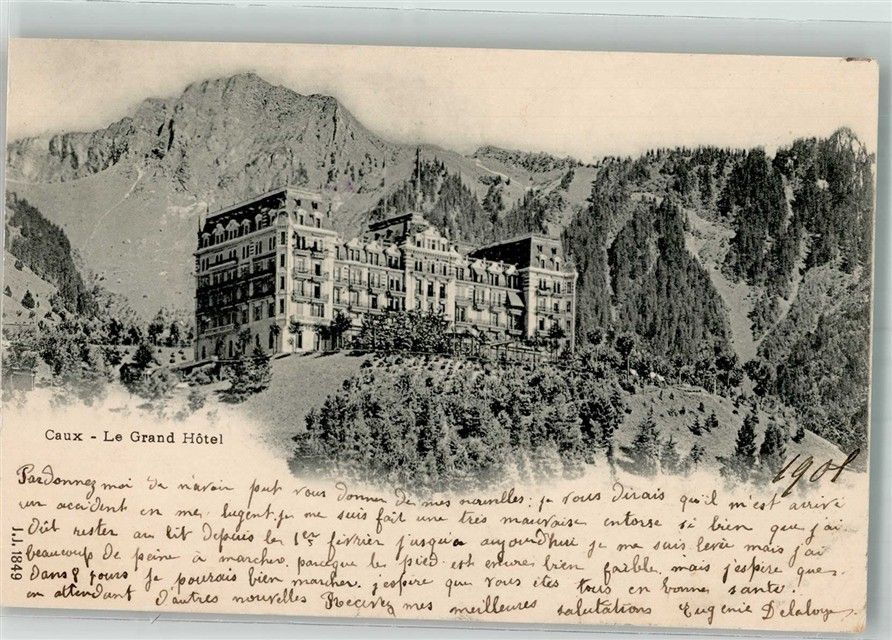 Caux - Le Grand Hôtel
1901
J.J. 1849
Pardonnez moi de n'avoir put vous donner de mes nouvelles; je vous dirais qu'il m'est arrivé
un accident en me lugent. je me suis fait une très mauvaise entorse si bien que j'ai
dût rester au lit depuis le 1er février jusqu'a aujourd'hui je me suis levée mais j'ai
beaucoup de peine à marcher parceque le pied est encore bien faible mais j'espère que
dans 8 jours je pourais bien marcher. j'espire que vous êtes tous en bonne santé.
en attendant d'autres nouvelles Recevez mes meilleures salutations Eugenie Delaloye